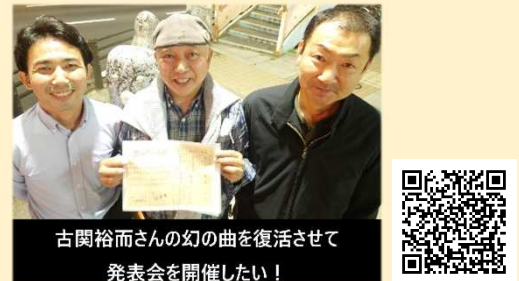 古関裕而さんの幻の曲を復活させて
発表会を開催したい！